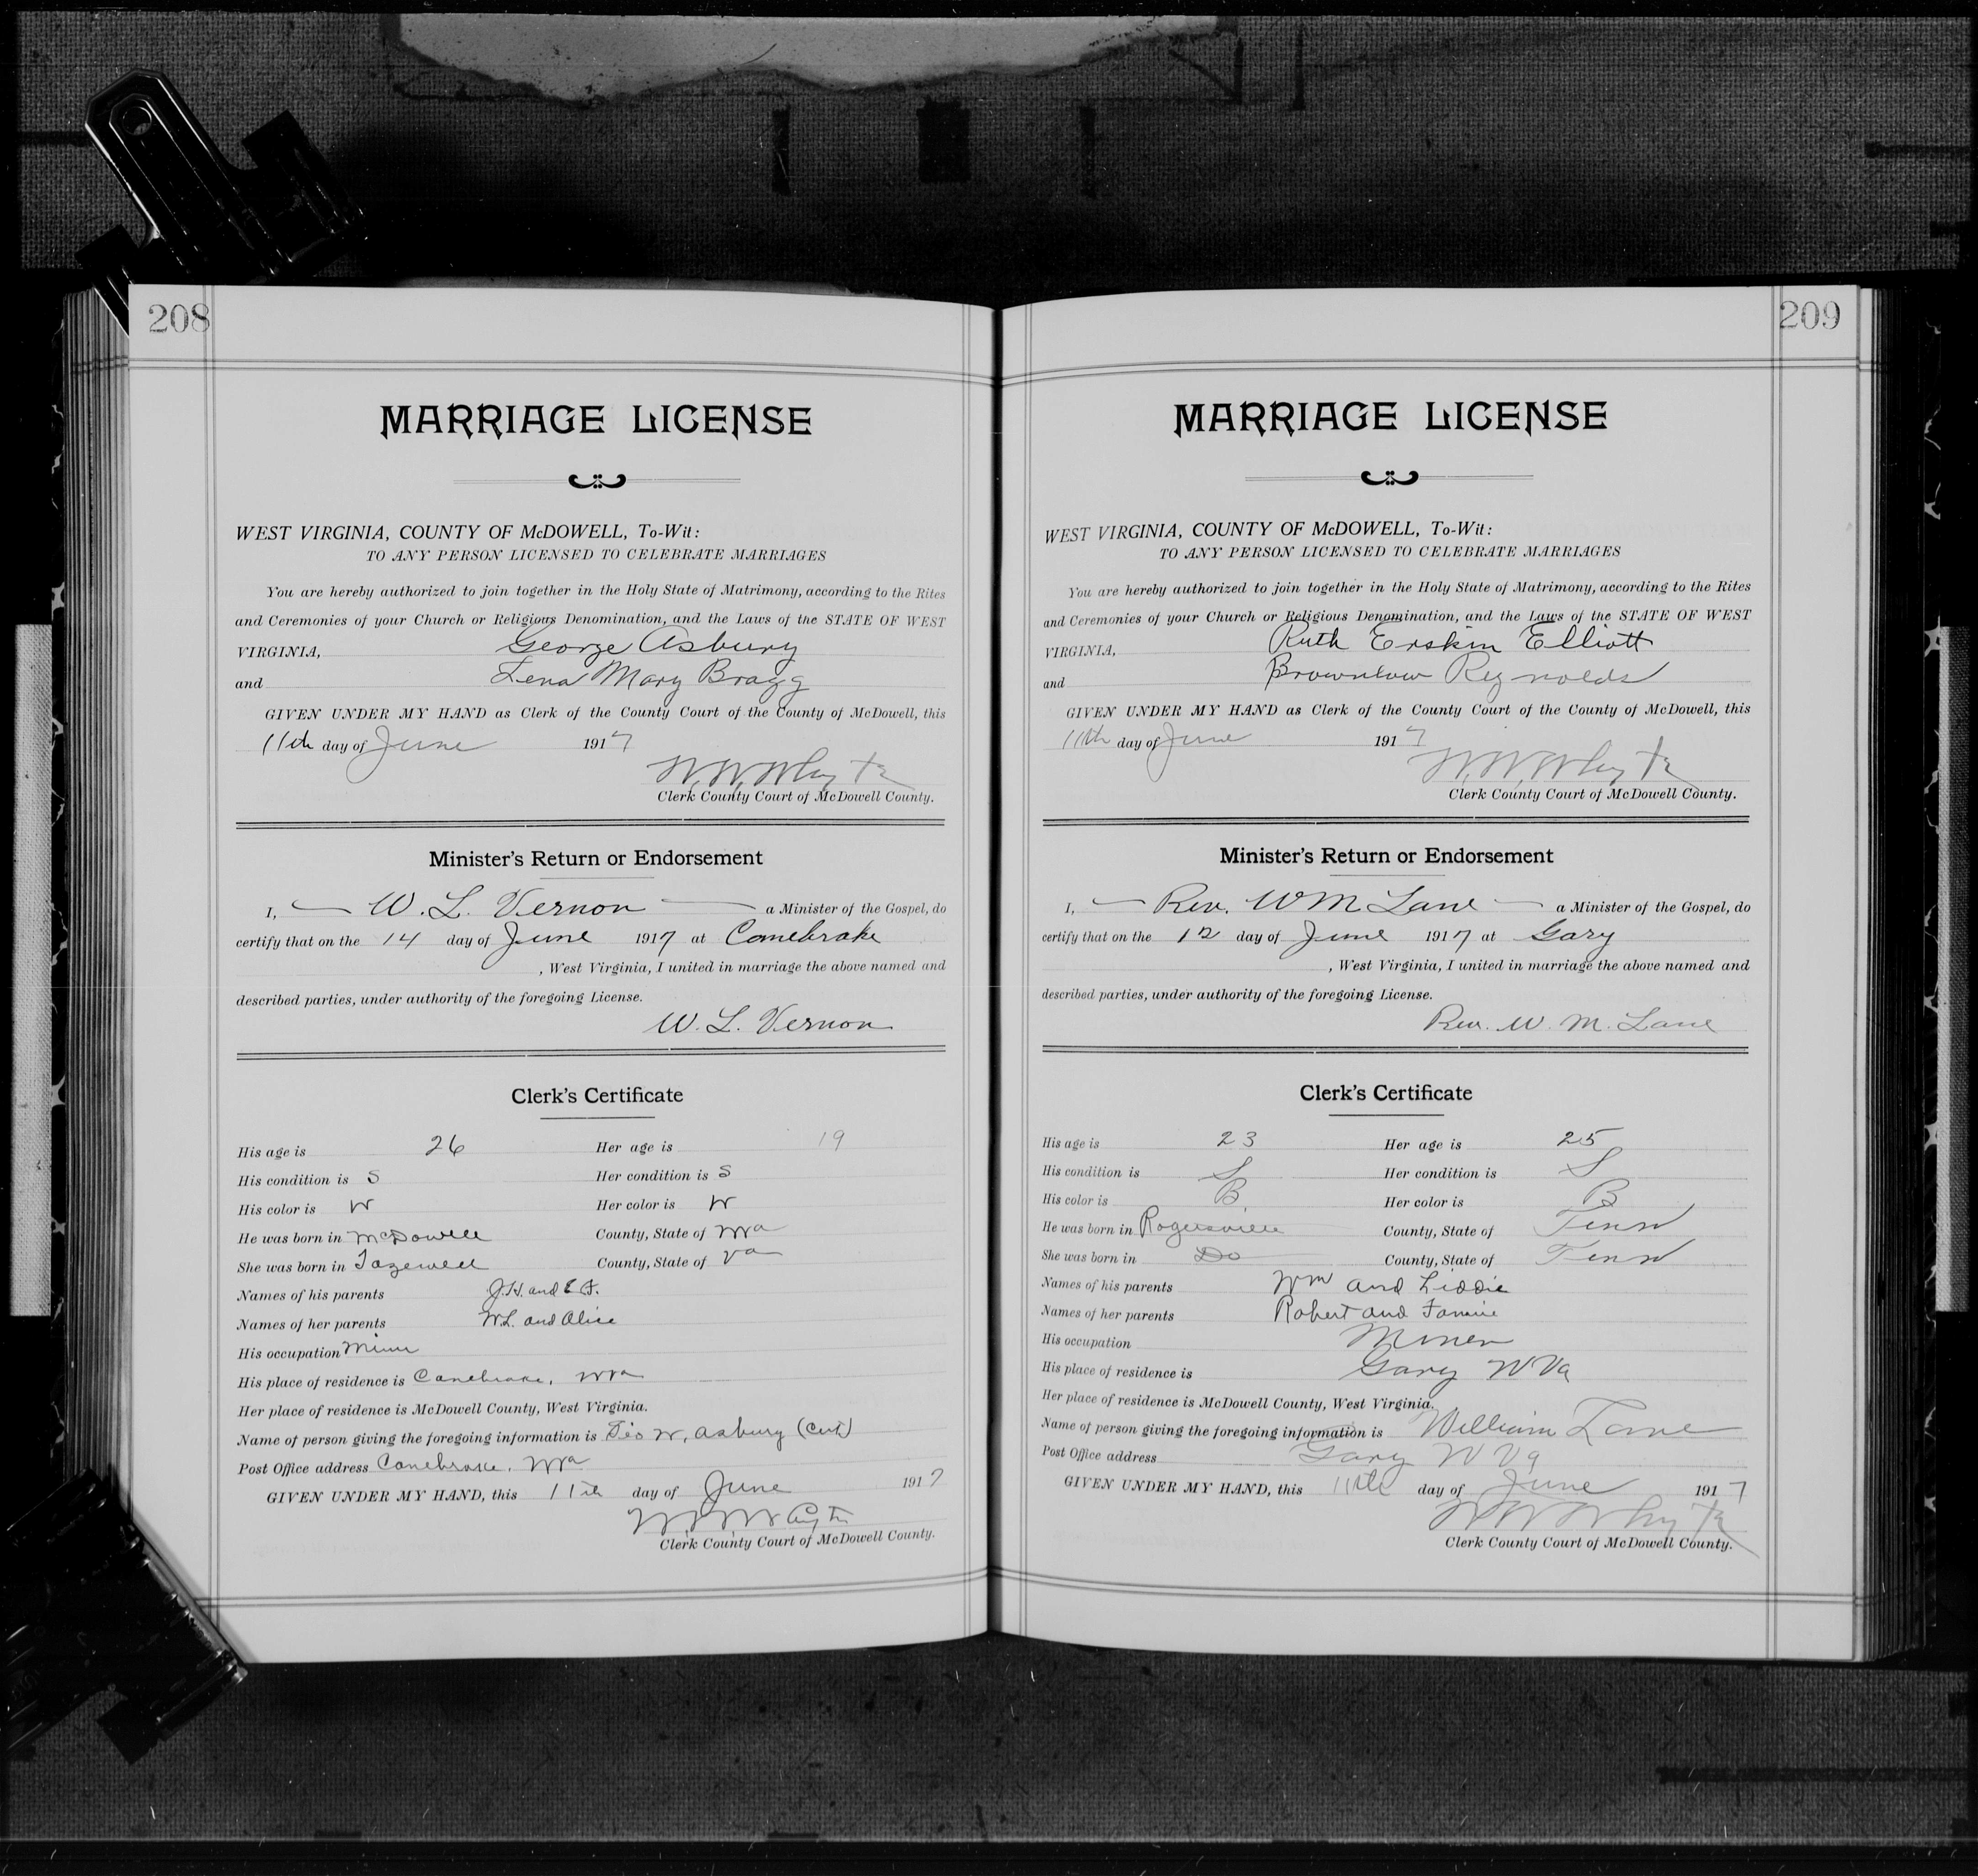 208
MARRIAGE LICENSE
WEST VIRGINIA, COUNTY OF McDOWELL, To-Wit:
TO ANY PERSON LICENSED TO CELEBRATE MARRIAGES
You are hereby authorized to join together in the Holy State of Matrimony, according to the Rites
and Ceremonies of your Church or Religious Denomination, and the Laws of the STATE OF WEST
VIRGINIA, George Asbury
and Lena Mary Bragg
GIVEN UNDER MY HAND as Clerk of the County Court of the County of McDowell, this
11th day of June 1917
W.W. Whyte
Clerk County Court of McDowell County.
Minister's Return or Endorsement
I, W. L. Vernon a Minister of the Gospel, do
certify that on the 14 day of June 1917 at Canebrake
, West Virginia, I united in marriage the above named and
described parties, under authority of the foregoing License.
W. L. Vernon
Clerk's Certificate
His age is 26 Her age is 19
His condition is S Her condition is S
His color is W Her color is W
He was born in McDowell County, State of WVa
She was born in Tazewell County, State of Va
Names of his parents J.H. and
Names of her parents W.L. and Alice
His occupation Miner
His place of residence is Canebrake, WVa
Her place of residence is McDowell County, West Virginia.
Name of person giving the foregoing information is Geo W. Asbury (Cert)
Post Office address Canebrake, WVa
GIVEN UNDER MY HAND, this 11th day of June 1917
W.W. Whyte
Clerk County Court of McDowell County.
209
MARRIAGE LICENSE
WEST VIRGINIA, COUNTY OF McDOWELL, To-Wit:
TO ANY PERSON LICENSED TO CELEBRATE MARRIAGES
You are hereby authorized to join together in the Holy State of Matrimony, according to the Rites
and Ceremonies of your Church or Religious Denomination, and the Laws of the STATE OF WEST
VIRGINIA, Ruth Erskin Elliott
and Brownlow Reynolds
GIVEN UNDER MY HAND as Clerk of the County Court of the County of McDowell, this
11th day of June 1917
W.W. Whyte
Clerk County Court of McDowell County.
Minister's Return or Endorsement
I, Rev. W M Lane a Minister of the Gospel, do
certify that on the 12 day of June 1917 at Gary
, West Virginia, I united in marriage the above named and
described parties, under authority of the foregoing License.
Rev. W. M. Lane
Clerk's Certificate
His age is 23 Her age is 25
His condition is S Her condition is S
His color is B Her color is B
He was born in Rogersville County, State of Tenn
She was born in Do County, State of Tenn
Names of his parents Wm and Liddie
Names of her parents Robert and Fannie
His occupation Miner
His place of residence is Gary W Va
Her place of residence is McDowell County, West Virginia.
Name of person giving the foregoing information is William Lane
Post Office address Gary W Va
GIVEN UNDER MY HAND, this 11th day of June 1917
W W Whyte
Clerk County Court of McDowell County.